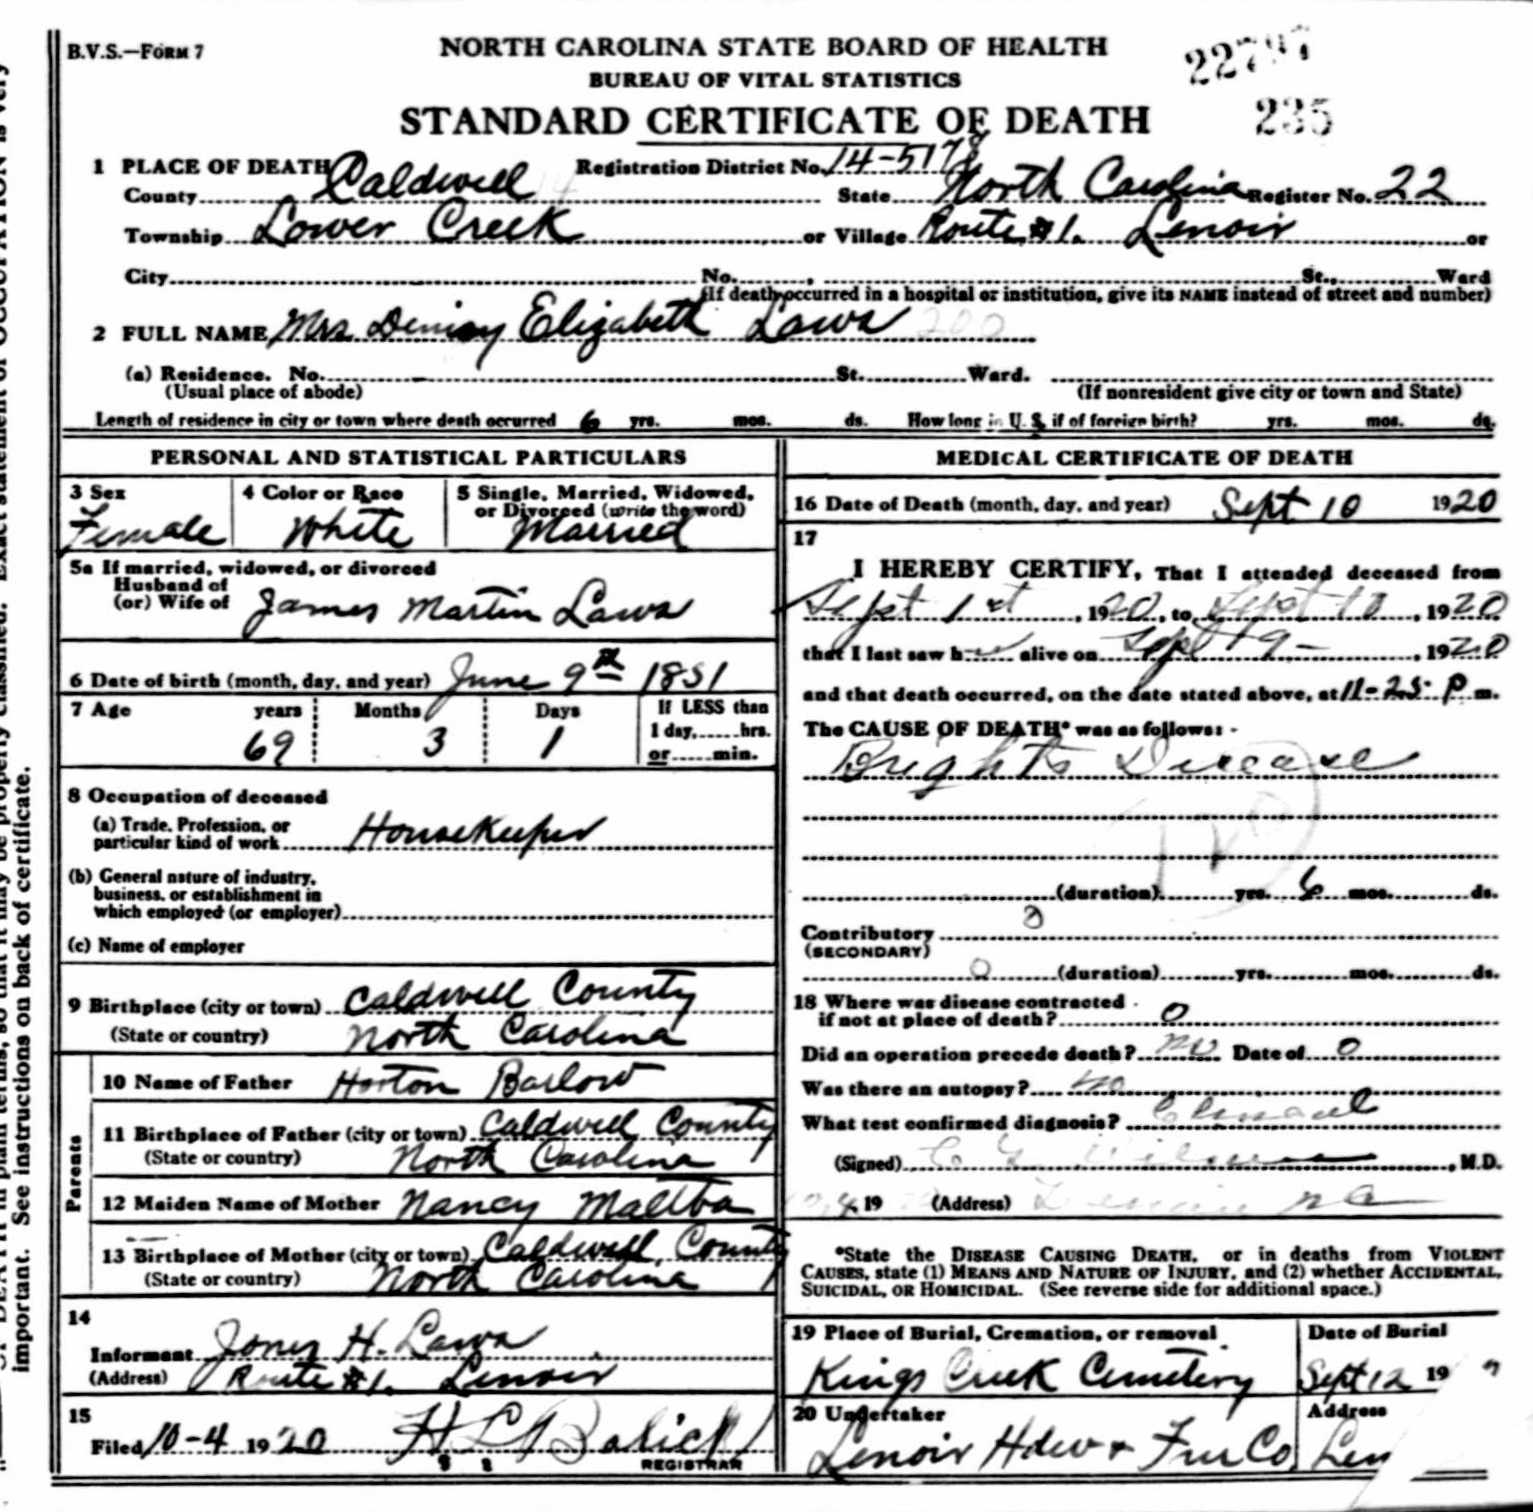 B.V.S.—FORM 7
NORTH CAROLINA STATE BOARD OF HEALTH
BUREAU OF VITAL STATISTICS
STANDARD CERTIFICATE OF DEATH
235
1 PLACE OF DEATH Registration District No. 14-5178
County Caldwell State North Carolina Register No. 22
Township Lower Creek or Village Route #1. Lenoir or
City No. , St., Ward
(If death occurred in a hospital or institution, give its NAME instead of street and number)
2 FULL NAME Mrs Elizabeth Laws 200
(a) Residence. No. St. Ward.
(Usual place of abode) (If nonresident give city or town and State)
Length of residence in city or town where death occurred 6 yrs. mos. ds. How long in U. S. if of foreign birth? yrs. mos. ds.
PERSONAL AND STATISTICAL PARTICULARS
3 Sex 4 Color or Race 5 Single, Married, Widowed, or Divorced (write the word)
Female White Married
5a If married, widowed, or divorced
Husband of
(or) Wife of James Martin Laws
6 Date of birth (month, day, and year) June 9th 1851
7 Age years Months Days If LESS than
1 day, hrs.
69 3 1 or min.
8 Occupation of deceased
(a) Trade, Profession, or
particular kind of work Housekeeper
(b) General nature of industry,
business, or establishment in
which employed (or employer)
(c) Name of employer
9 Birthplace (city or town) Caldwell County
(State or country) North Carolina
Parents
10 Name of Father Horton Barlow
11 Birthplace of Father (city or town) Caldwell County
(State or country) North Carolina
12 Maiden Name of Mother Nancy Maltba
13 Birthplace of Mother (city or town) Caldwell County
(State or country) North Carolina
14
Informant Jones H. Laws
(Address) Route #1. Lenoir
15
Filed 10-4 1920
REGISTRAR
MEDICAL CERTIFICATE OF DEATH
16 Date of Death (month, day, and year) Sept 10 1920
17
I HEREBY CERTIFY, That I attended deceased from
Sept 1st, 1920, to Sept 10, 1920
that I last saw h alive on Sept 9 - , 1920
and that death occurred, on the date stated above, at 11-25 P m.
The CAUSE OF DEATH* was as follows:
Brights Disease
(duration) yrs. 6 mos. ds.
Contributory 0
(SECONDARY)
0 (duration) yrs. mos. ds.
18 Where was disease contracted
if not at place of death? 0
Did an operation precede death? no Date of 0
Was there an autopsy? no
What test confirmed diagnosis?
(Signed) , M.D.
19 (Address) Lenoir NC
*State the DISEASE CAUSING DEATH, or in deaths from VIOLENT
CAUSES, state (1) MEANS AND NATURE OF INJURY, and (2) whether ACCIDENTAL,
SUICIDAL, OR HOMICIDAL. (See reverse side for additional space.)
19 Place of Burial, Cremation, or removal Date of Burial
Kings Creek Cemetery Sept 12 19
20 Undertaker Address
Lenoir Hdw & Fur Co.
important. See instructions on back of certificate.